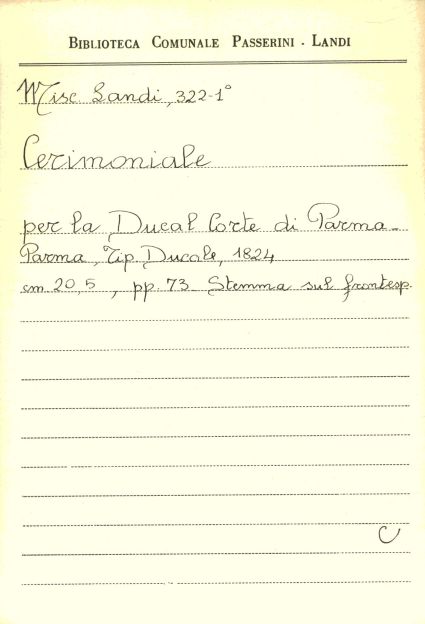 BIBLIOTECA COMUNALE PASSERINI - LANDI
Misc Landi, 322-1°
Cerimoniale
per la Ducal Corte di Parma -
Parma, Tip. Ducale, 1824
cm 20,5, pp. 73 Stemma sul frontesp.
C